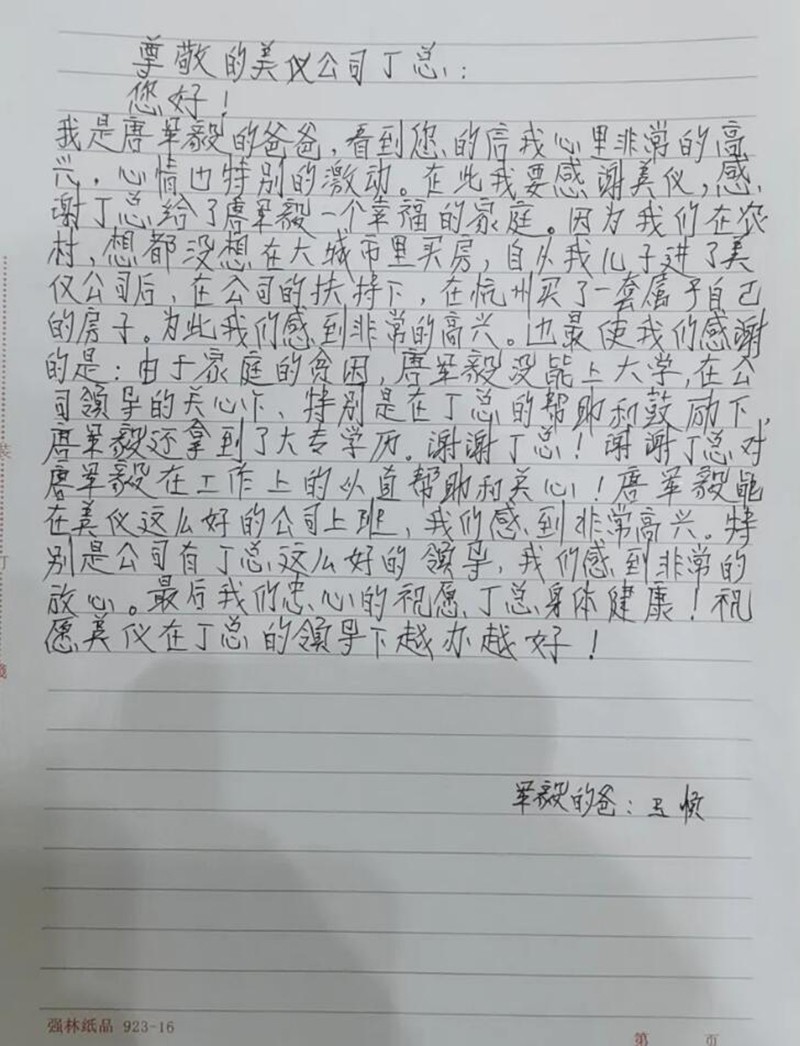 尊敬的美仪公司丁总：
您好！
我是唐军毅的爸爸，看到您的信我心里非常的高
兴，心情也特别的激动。在此我要感谢美仪，感
谢丁总给了唐军毅一个幸福的家庭。因为我们在农
村，想都没想在大城市里买房，自从我儿子进了美
仪公司后，在公司的扶持下，在杭州买了一套属于自己
的房子。为此我们感到非常的高兴。也最使我们感谢
的是：由于家庭的贫困，唐军毅没能上大学，在公
司领导的关心下、特别是在丁总的帮助和鼓励下，
唐军毅还拿到了大专学历。谢谢丁总！谢谢丁总对
唐军毅在工作上的以直帮助和关心！唐军毅能
在美仪这么好的公司上班，我们感到非常高兴。特
别是公司有丁总这么好的领导，我们感到非常的
放心。最后我们忠心的祝愿丁总身体健康！祝
愿美仪在丁总的领导下越办越好！
军毅的爸：
强林纸品 923-16
第 页
装
订